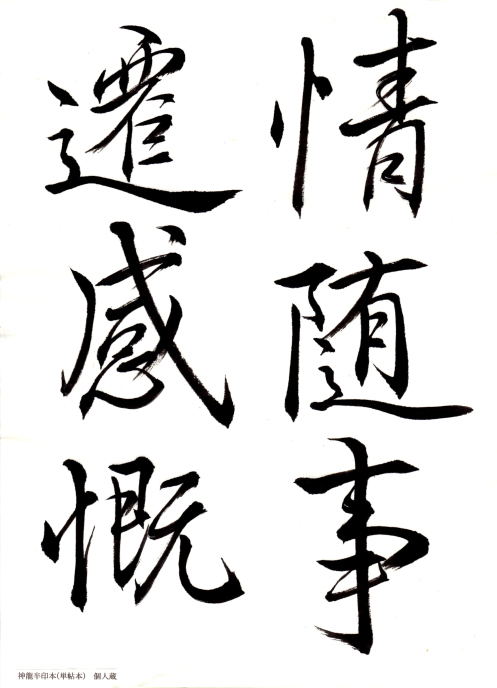 情随事
遷感慨
神龍半印本(単帖本) 個人蔵